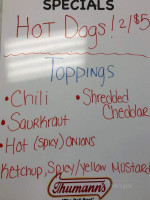 SPECIALS
HOT Dogs! 2/$5
Toppings
• Chili
• Shredded Cheddar
• Saurkraut
• Hot (spicy) onions
Ketchup, Spicy/yellow Mustard
Thumann's